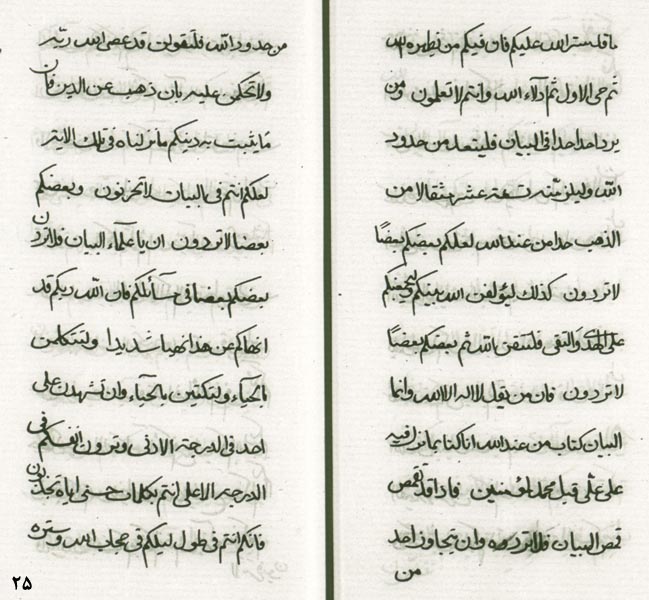 ما قد ستر الله عليكم فان فيكم من نطهره
ثم حى الاول ثم دلاء الله وانتم لا تعلمون ومن
يرد احدا فى البيان فليتعد من حدود
الله وليلزمنه تسعة عشر مثقالا من
الذهب حدا من عند الله لعلكم بعضكم بعضا
لا تردون كذلك ليؤلفن الله بينكم ليجمعنكم
على الهدى والتقى فلتتقن الله ثم بعضكم بعضا
لا تردون فان من يقل لا اله الا الله وانما
البيان كتاب من عند الله انا كنا بما نزل فيه
على على قبل محمد لمؤمنين فاذا قد تقمص
قمص البيان فلا تردوه وان يتجاوز احد
من
من حدود الله فلتقولن قد عصى الله ربه
ولا تحكمن عليه بان ذهب عن الدين فان
ما يثبت به دينكم ما نزلناه فى تلك الاية
لعلكم انتم فى البيان لا تحزنون وبعضكم
بعضا لا تردون ان يا علماء البيان فلا تردن
بعضكم بعضا فى مسائلكم فان الله ربكم قد
انهاكم عن هذا نهيا شديدا ولتتكلمن
بالحياء ولتكتبن بالحياء وان تشهدن على
احد فى الدرجة الادنى وترون انفسكم فى
الدرجة الاعلى انتم بكلمات حسنى اياه تجذبون
فانكم انتم فى طول ليلكم فى حجاب الله وستره
٢٥